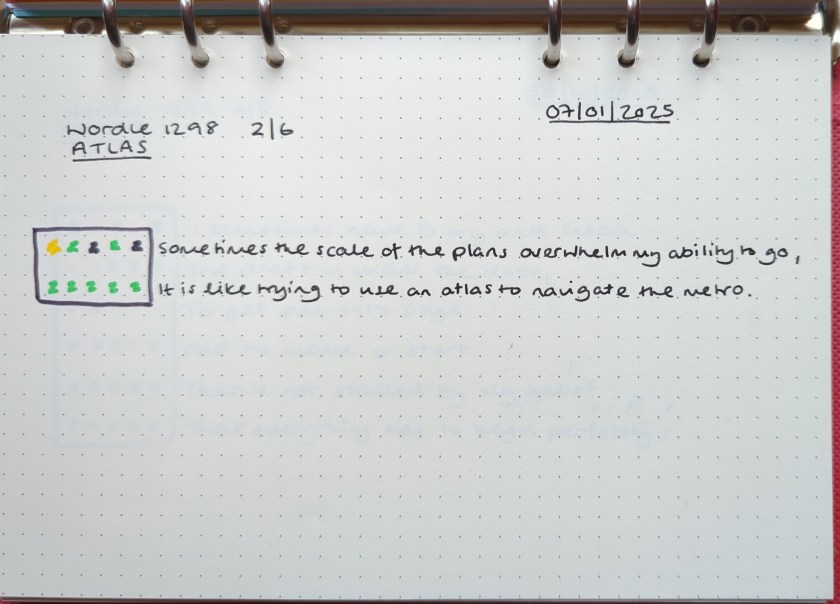 07/01/2025
Wordle 1298 2/6
ATLAS
Sometimes the scale of the plans overwhelm my ability to go,
It is like trying to use an atlas to navigate the metro.